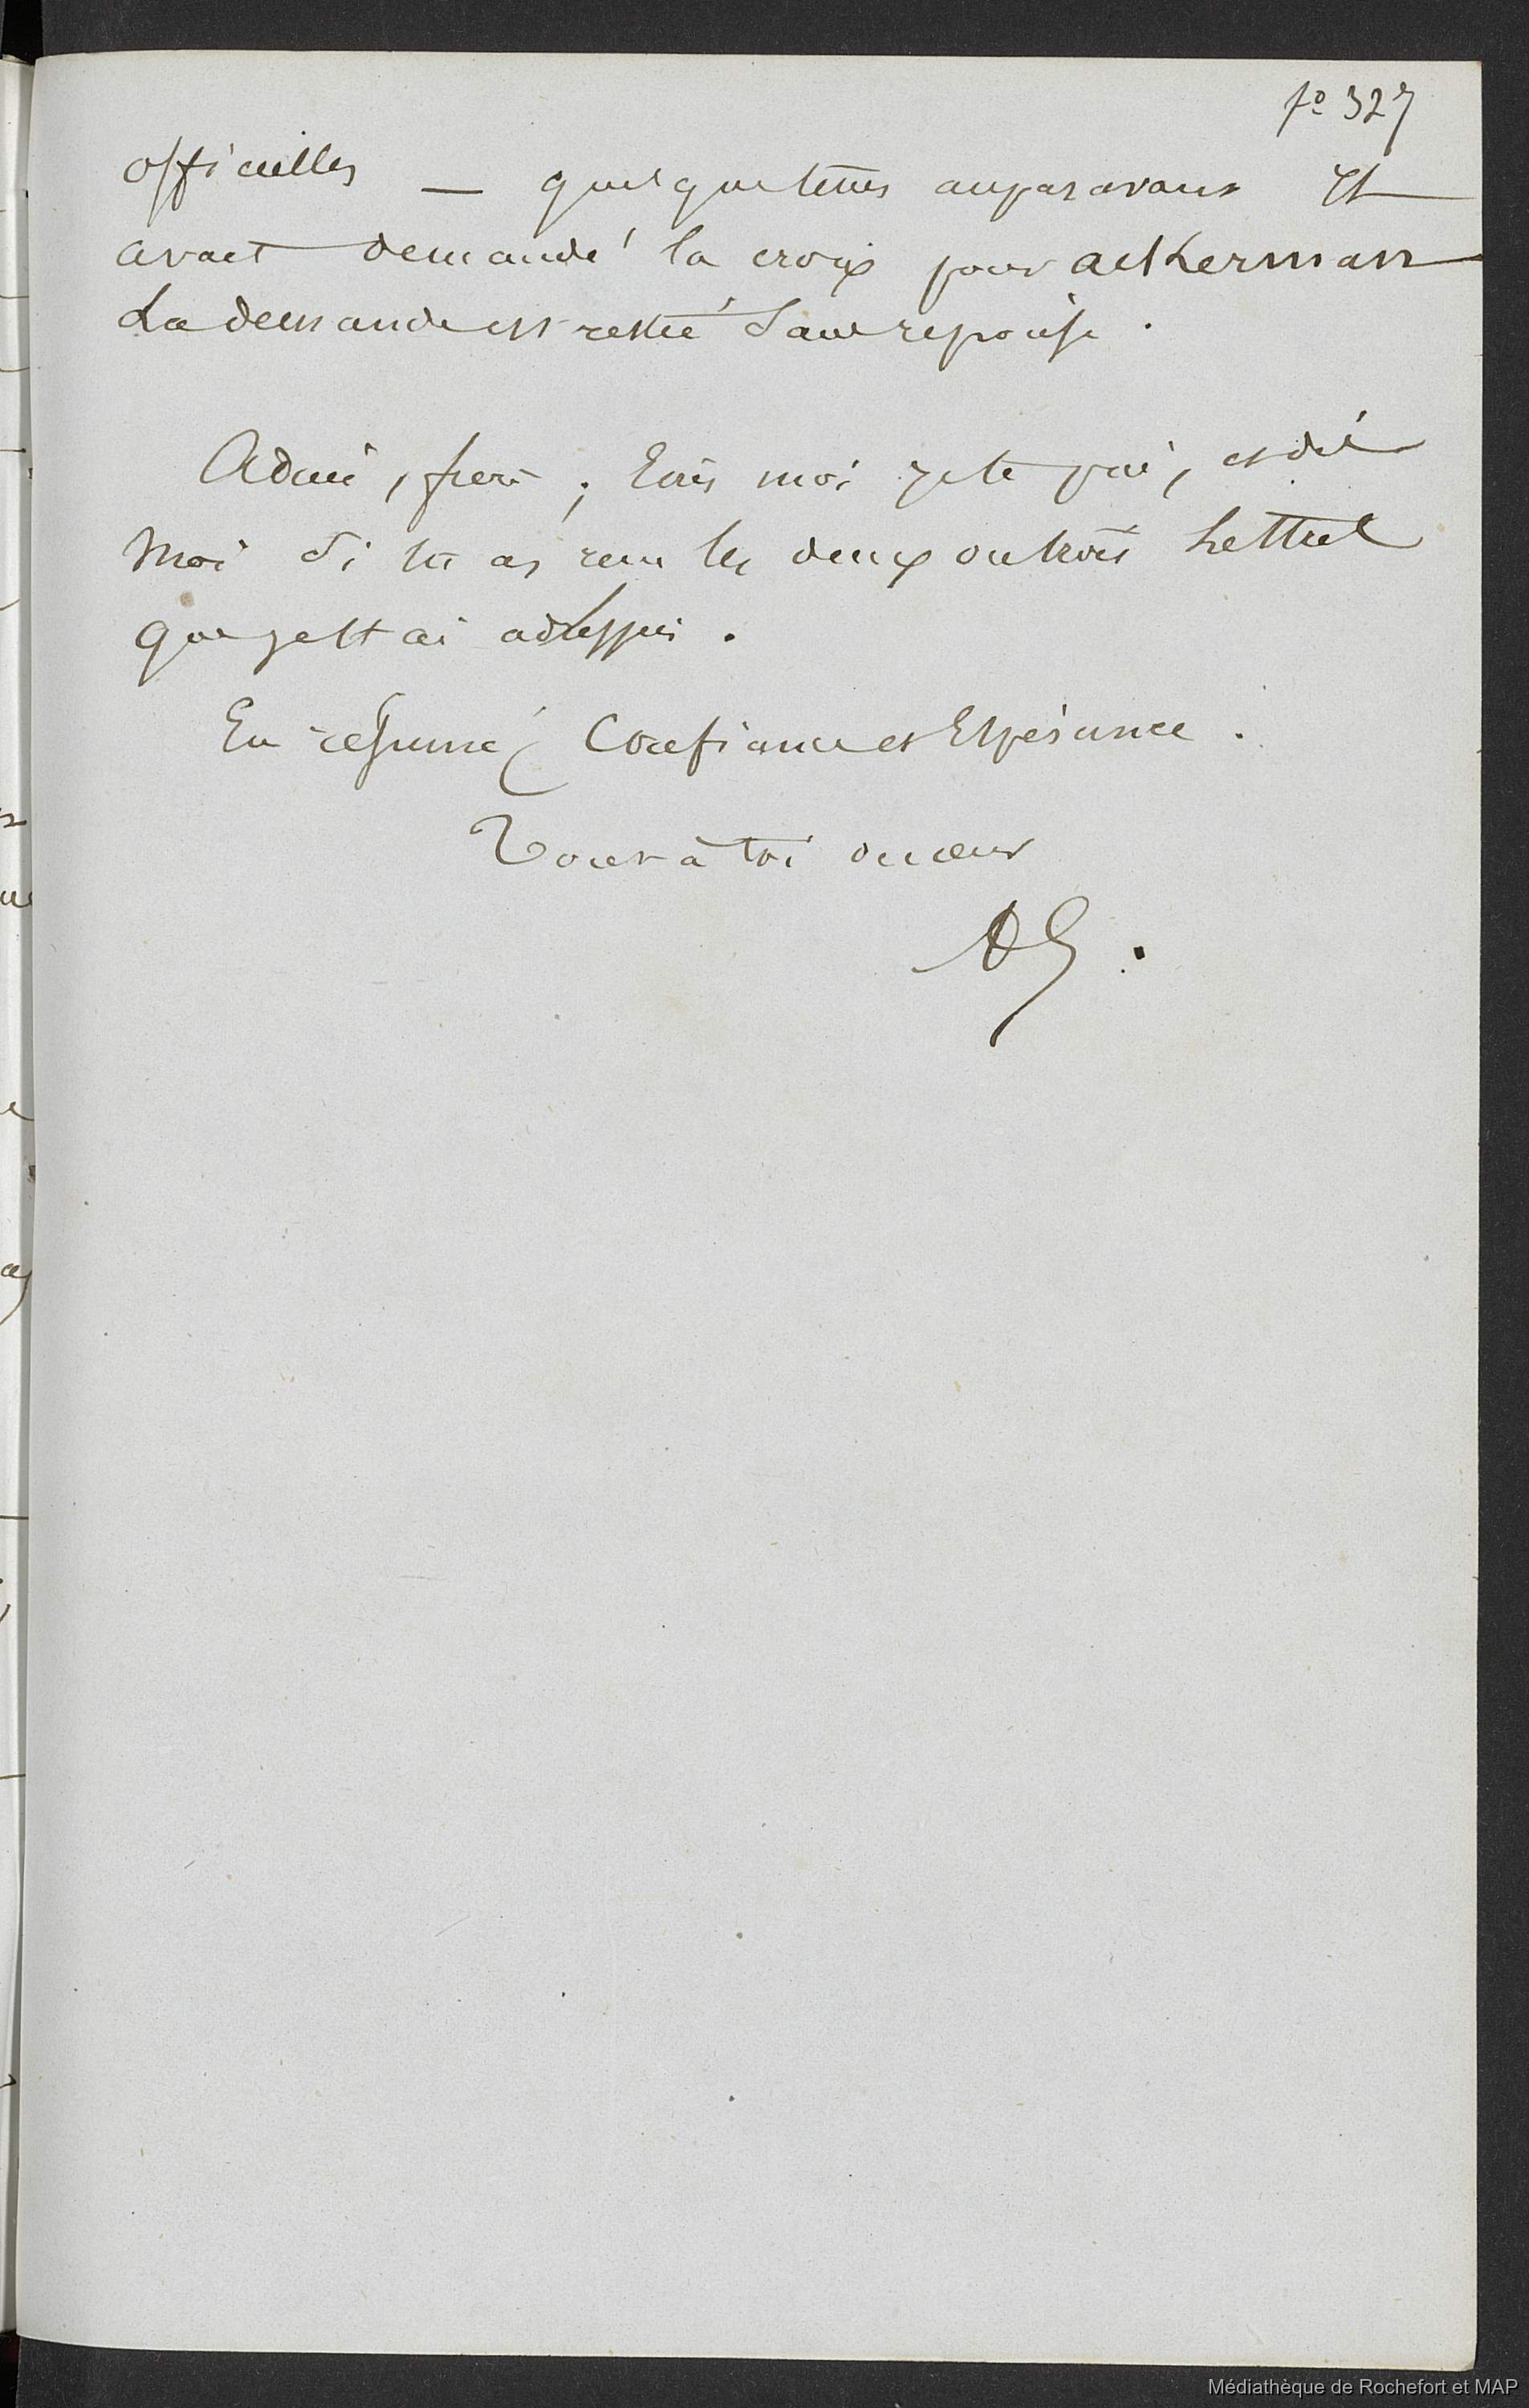 fº 327
officielles — quelque temps auparavant Il
avait demandé la croix pour ackerman
La demande est restée sans reponse.
Adieu, frere; Ecris moi je te prie, et dis
moi si tu as reçu les deux ou trois Lettres
que je t'ai adressées.
En résumé, Confiance et Espérance.
Tout à toi de cœur
Médiathèque de Rochefort et MAP